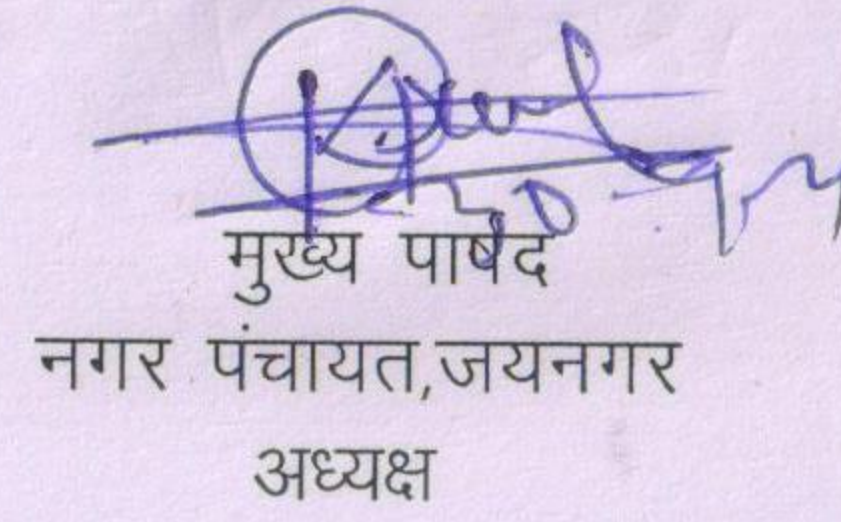 मुख्य पार्षद
नगर पंचायत,जयनगर
अध्यक्ष